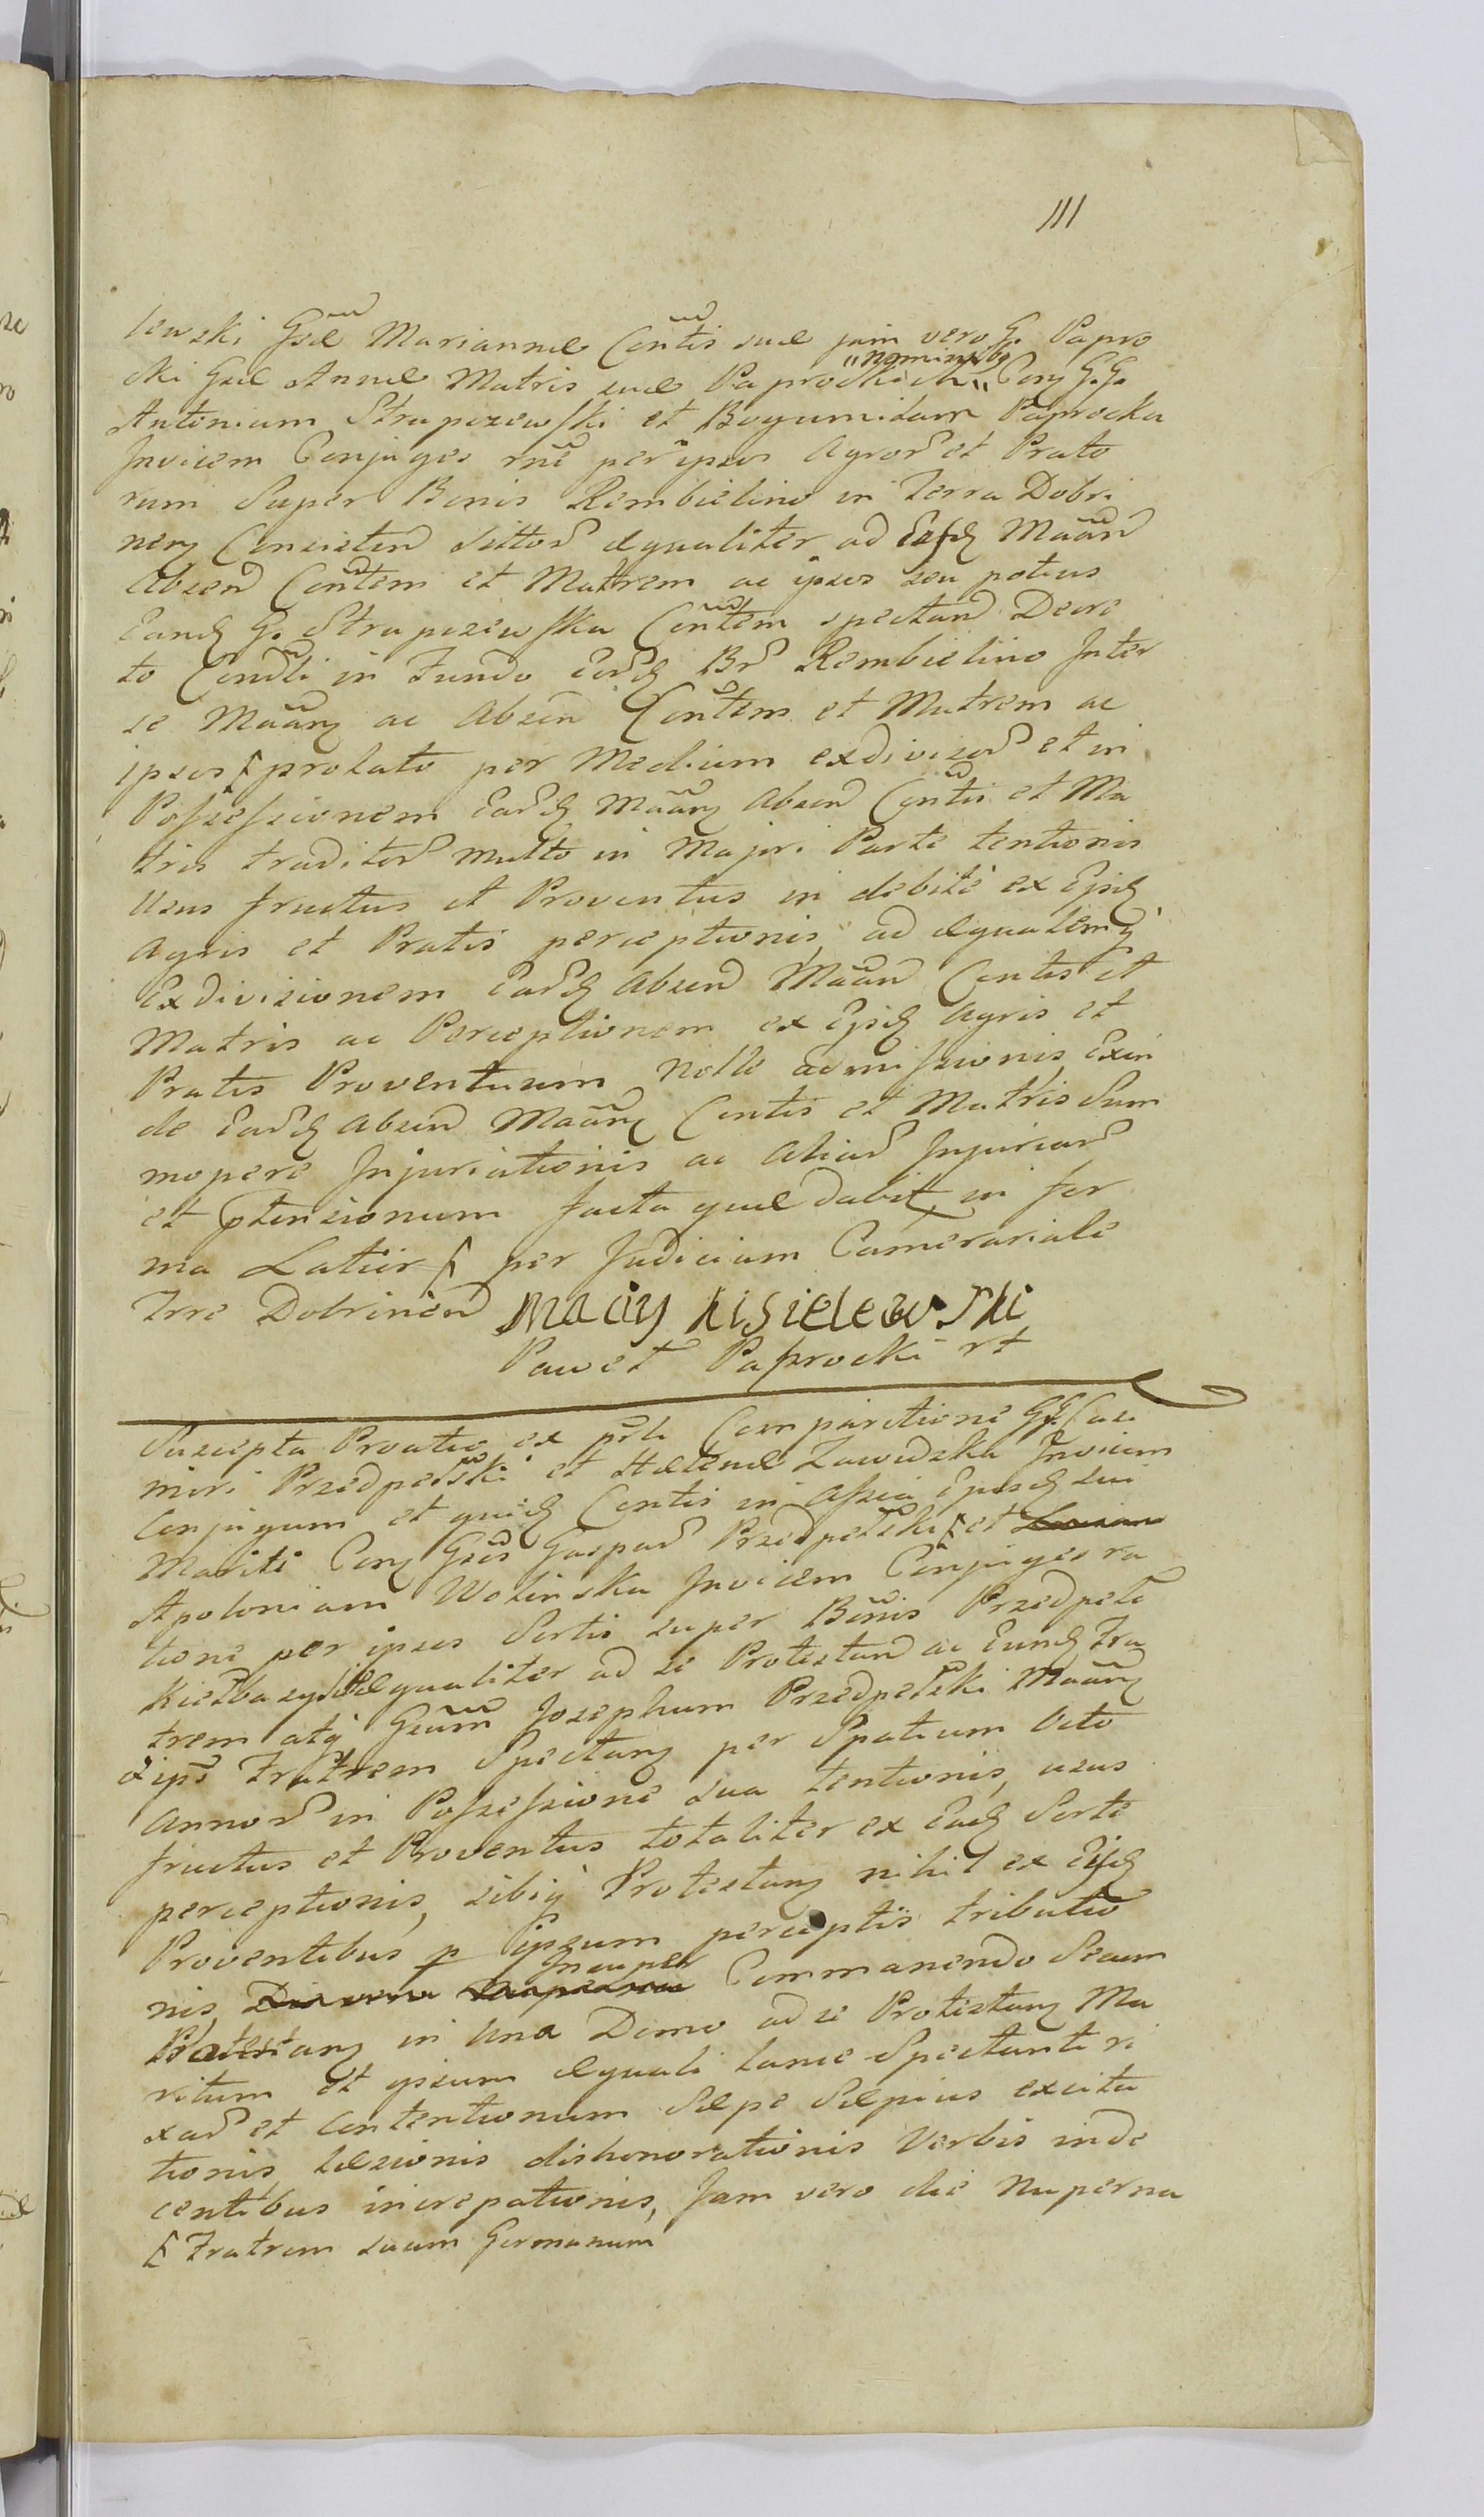 111
lewski Gsæ Mariannæ Contis suæ jam vero G. Papro
cki Gsæ Annæ Matris suæ Paprockich „nominibg„ Cong G.G.
Antonium Strupczewski et Bogumilam Paprocka
Invicem Conjuges rne per ipsos Agror et Prato
rum Super Bonis Rembielino in Terra Dobri
neng Consisten Sittor æqualiter ad Easdg Maan
Absen Contem et Matrem ac ipsos seu potius
Eandg G. Strupczewska Contem spectan Decre
to Condli in Fundo Eordg Br Rembielino Inter
se Maang ac Absen Contem et Matrem ac
ipsos prolato per Medium exdivisor et in
Possessionem Eardg Maang Absen Contis et Ma
tris traditor multo in Majori Parte tentionis
Usus fructus et Proventus in debite ex Eisdg
Agris et Pratis perceptionis, ad æqualemq
Exdivisionem Eardg Absen Maan Contis et
Matris ac Perceptionem ex Eisdg Agris et
Pratis Proventuum Nolle admissionis, Exin
de Eardg Absen Maang Contis et Matris Sum
mopere Injuriationis ac Aliar Injuriar
et ptensionum facta quæ dabit in for
ma Latior per Judicium Camerariale
Trre Dobrinen Maciy Kisielewski
Paweł Paprocki rt
Suscepta Protio ex psli Comparitione GG. Casi
miri Przedpełski et Helenæ Zawidzka Invicem
Conjugum et quidg Contis in Assia Ejusdg Sui
Mariti Cong Gsos Gaspar Przedpełski et
Apoloniam Wolinska Invicem Conjuges ra
tione per ipsos Sortis super Bonis Przedpełe
Kiełbasy æqualiter ad se Protestan ac Eundg Fra
trem atq Gsum Josephum Przedpełski Maang
ips Fratrem Spectang per Spatium Octo
Annor in Possessione sua tentionis, usus
fructus et Proventus totaliter ex Eadg Sorte
perceptionis, sibiq Protestang nihil ex Eisdg
Proventibus p ipsum perceptis tributio
nis, Insuper Commanendo Secum
Protestang in Una Domo ad se Protestang Ma
ritum et ipsum æquali lance Spectante ri
xar et Contentionum Sæpe Sæpius excita
tionis, læsionis dishonorationis Verbis inde
centibus increpationis, Jam vero die Nuperna
Fratrem suum Germanum